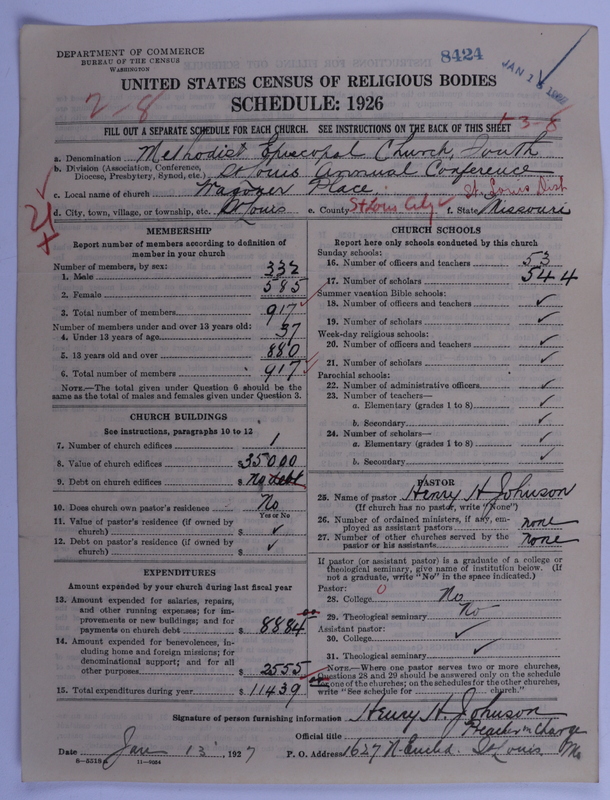 DEPARTMENT OF COMMERCE
BUREAU OF THE CENSUS
WASHINGTON
8424
JAN 1
2-8
UNITED STATES CENSUS OF RELIGIOUS BODIES
SCHEDULE: 1926
FILL OUT A SEPARATE SCHEDULE FOR EACH CHURCH. SEE INSTRUCTIONS ON THE BACK OF THIS SHEET
3-8
a. Denomination Methodist Episcopal Church, South
b. Division (Association, Conference, Diocese, Presbytery, Synod, etc.) St Louis Annual Conference
c. Local name of church Wagoner Place. St. Louis Dist
d. City, town, village, or township, etc. St Louis e. County St Louis City f. State Missouri
MEMBERSHIP
Report number of members according to definition of
member in your church
Number of members, by sex:
1. Male 332
2. Female 585
3. Total number of members 917
Number of members under and over 13 years old:
4. Under 13 years of age 37
5. 13 years old and over 880
6. Total number of members 917
NOTE.—The total given under Question 6 should be the
same as the total of males and females given under Question 3.
CHURCH BUILDINGS
See instructions, paragraphs 10 to 12
7. Number of church edifices 1
8. Value of church edifices $35000
9. Debt on church edifices $ no debt
10. Does church own pastor's residence No
Yes or No
11. Value of pastor's residence (if owned by
church) $ ✓
12. Debt on pastor's residence (if owned by
church) $ ✓
EXPENDITURES
Amount expended by your church during last fiscal year
13. Amount expended for salaries, repairs,
and other running expenses; for im-
provements or new buildings; and for
payments on church debt $ 8884
14. Amount expended for benevolences, in-
cluding home and foreign missions; for
denominational support; and for all
other purposes $ 2555
15. Total expenditures during year $ 11439
CHURCH SCHOOLS
Report here only schools conducted by this church
Sunday schools:
16. Number of officers and teachers 53
17. Number of scholars 544
Summer vacation Bible schools:
18. Number of officers and teachers ✓
19. Number of scholars ✓
Week-day religious schools:
20. Number of officers and teachers ✓
21. Number of scholars ✓
Parochial schools:
22. Number of administrative officers ✓
23. Number of teachers—
a. Elementary (grades 1 to 8) ✓
b. Secondary ✓
24. Number of scholars—
a. Elementary (grades 1 to 8) ✓
b. Secondary ✓
PASTOR
25. Name of pastor Henry H. Johnson
(If church has no pastor, write "None")
26. Number of ordained ministers, if any, em-
ployed as assistant pastors none
27. Number of other churches served by the
pastor or his assistants none
If pastor (or assistant pastor) is a graduate of a college or
theological seminary, give name of institution below. (If
not a graduate, write "No" in the space indicated.)
Pastor:
28. College 0 No
29. Theological seminary No
Assistant pastor:
30. College ✓
31. Theological seminary ✓
NOTE.—Where one pastor serves two or more churches,
Questions 28 and 29 should be answered only on the schedule
for one of the churches; on the schedules for the other churches,
write "See schedule for church."
Signature of person furnishing information Henry H. Johnson
Official title Preacher in Charge
Date Jan 13, 1927 P. O. Address 1627 N. Euclid. St Louis Mo